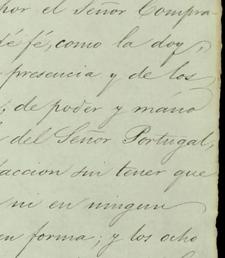 por el Señor Compra-
dé fé, como la doy,
presencia y de los
de poder y mano
del Señor Portugal,
accion sin tener que
ni en ningun
en forma; y los ocho